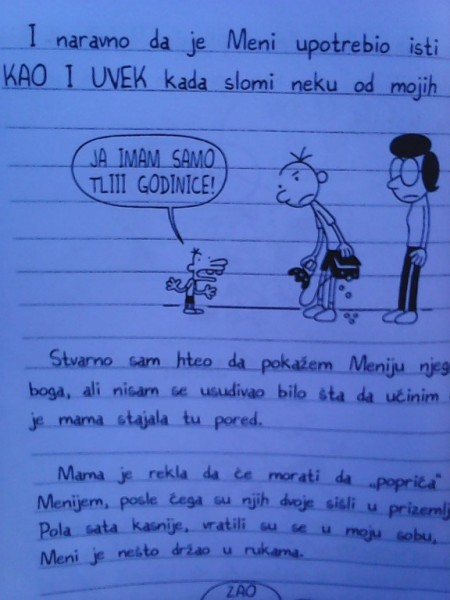 I naravno da je Meni upotrebio isti
KAO I UVEK kada slomi neku od mojih
JA IMAM SAMO
TLIII GODINICE!
Stvarno sam hteo da pokažem Meniju
boga, ali nisam se usuđivao bilo šta da učinim
je mama stajala tu pored.
Mama je rekla da će morati da „popriča“
Menijem, posle čega su njih dvoje sišli u
Pola sata kasnije, vratili su se u moju sobu,
Meni je nešto držao u rukama.